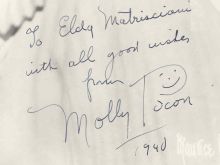 To Elda Matrisciani
with all good wishes
from
Molly Picon
1940